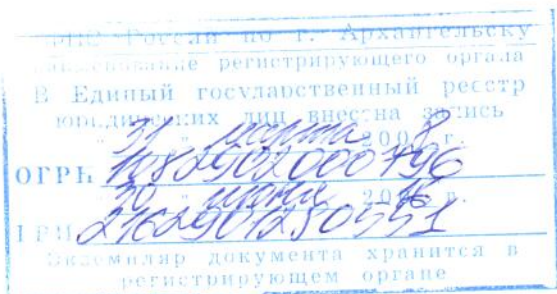 ИФНС России по г. Архангельску
наименование регистрирующего органа
В Единый государственный реестр
юридических лиц внесена запись
"31" марта 2008 г.
ОГРН 1082902000796
"30" июня 2016 г.
ГРН 2162901250551
Экземпляр документа хранится в
регистрирующем органе